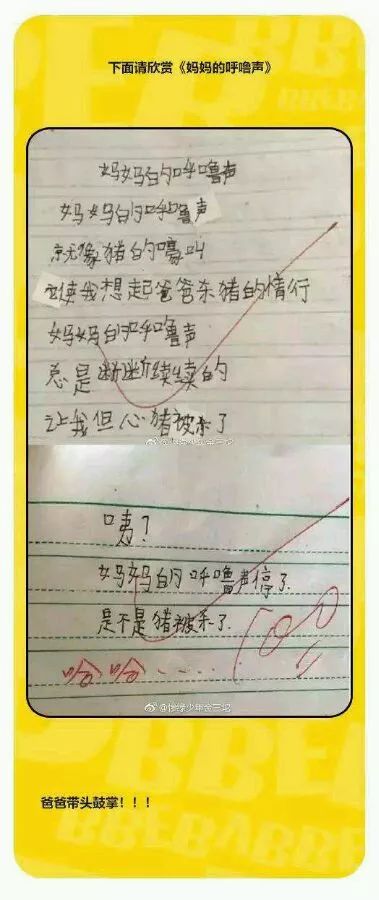 下面请欣赏《妈妈的呼噜声》
妈妈的呼噜声
妈妈的呼噜声
京尤像猪的嚎叫
使我想起爸爸杀猪的情行
妈妈的呼噜声
总是断断续续的
让我但心猪被杀了
咦？
妈妈的呼噜声停了.
是不是猪被杀了.
哈哈.....
100
爸爸带头鼓掌！！！